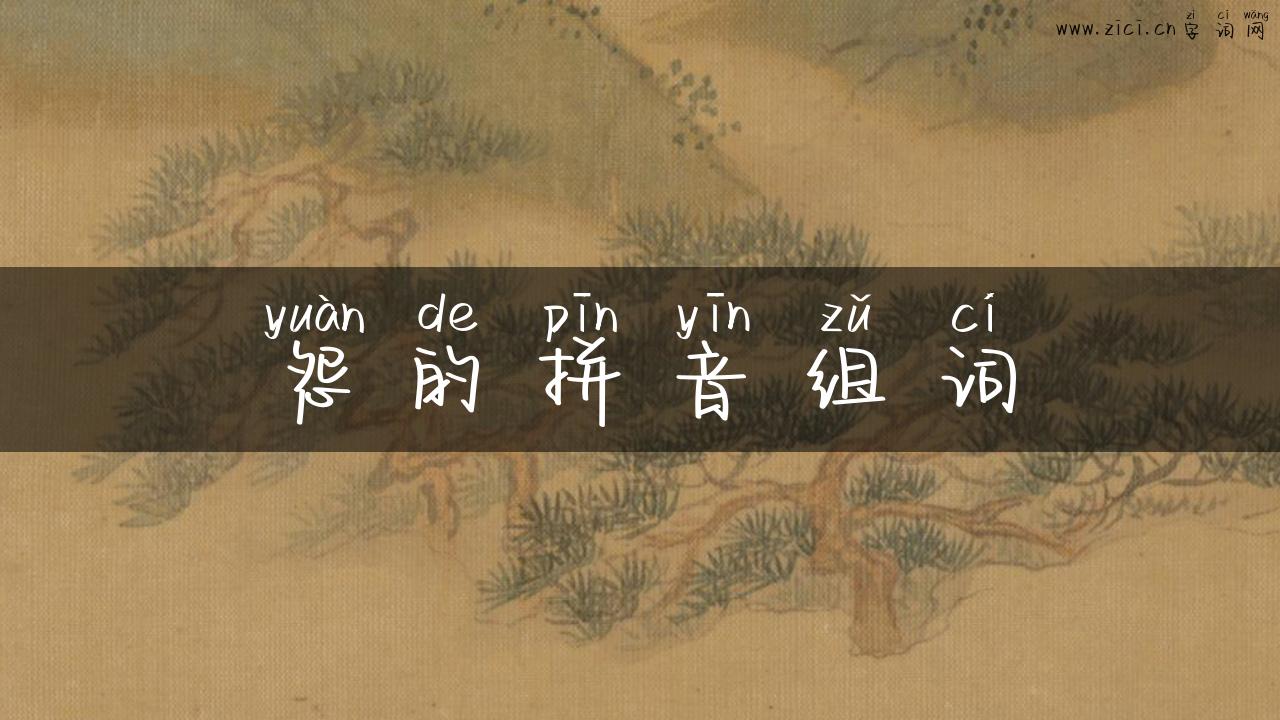 zì cí wǎng
www.zici.cn 字词网
yuàn de pīn yīn zǔ cí
怨的拼音组词